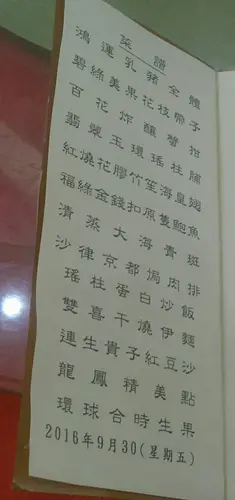 菜譜
鴻運乳豬全體
碧綠美果花枝帶子
百花炸釀蟹拑
翡翠玉環瑤柱脯
紅燒花膠竹笙海皇翅
福綠金錢扣原隻鮑魚
清蒸大海青斑
沙律京都焗肉排
瑤柱蛋白炒飯
雙喜干燒伊麵
連生貴子紅豆沙
龍鳳精美點
環球合時生果
2016年9月30(星期五)